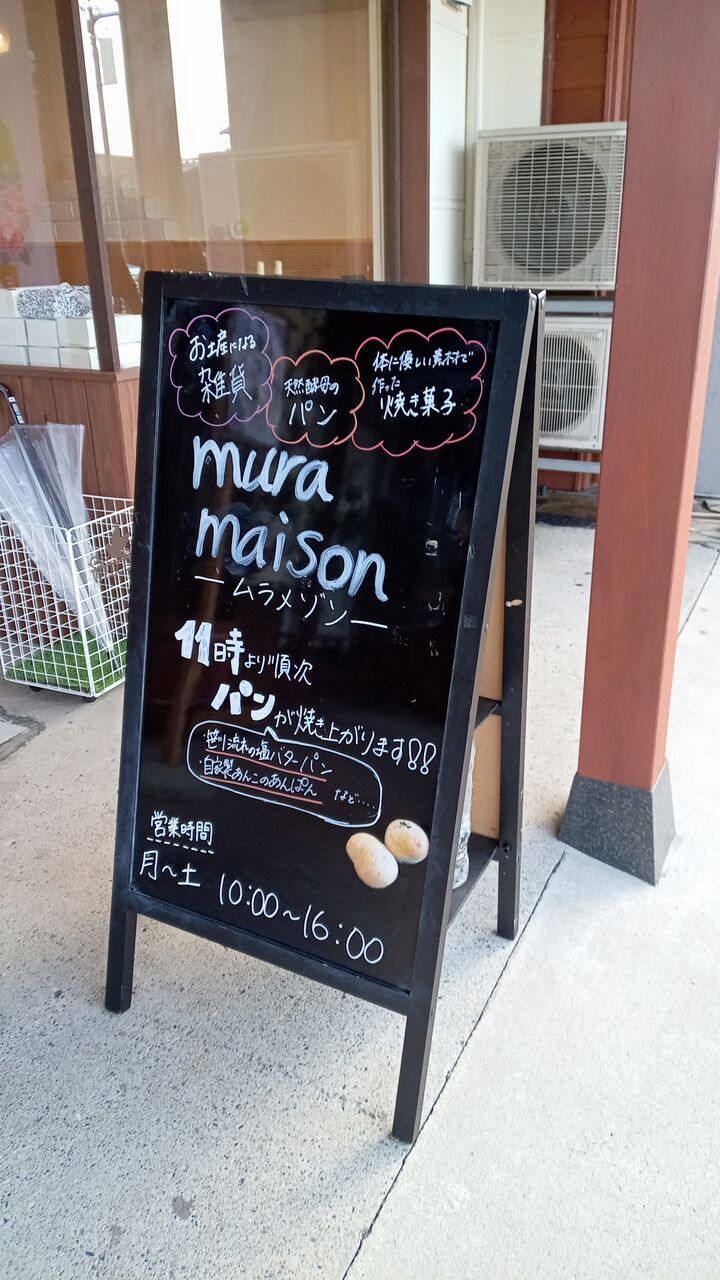 お土産になる
雑貨
天然酵母の
パン
体に優しい素材で
作った
焼き菓子
mura
maison
ームラメゾンー
11時より順次
パンが焼き上がります!!
・笹川流れの塩バターパン
・自家製あんこのあんぱん
など‥‥
営業時間
月〜土 10:00〜16:00